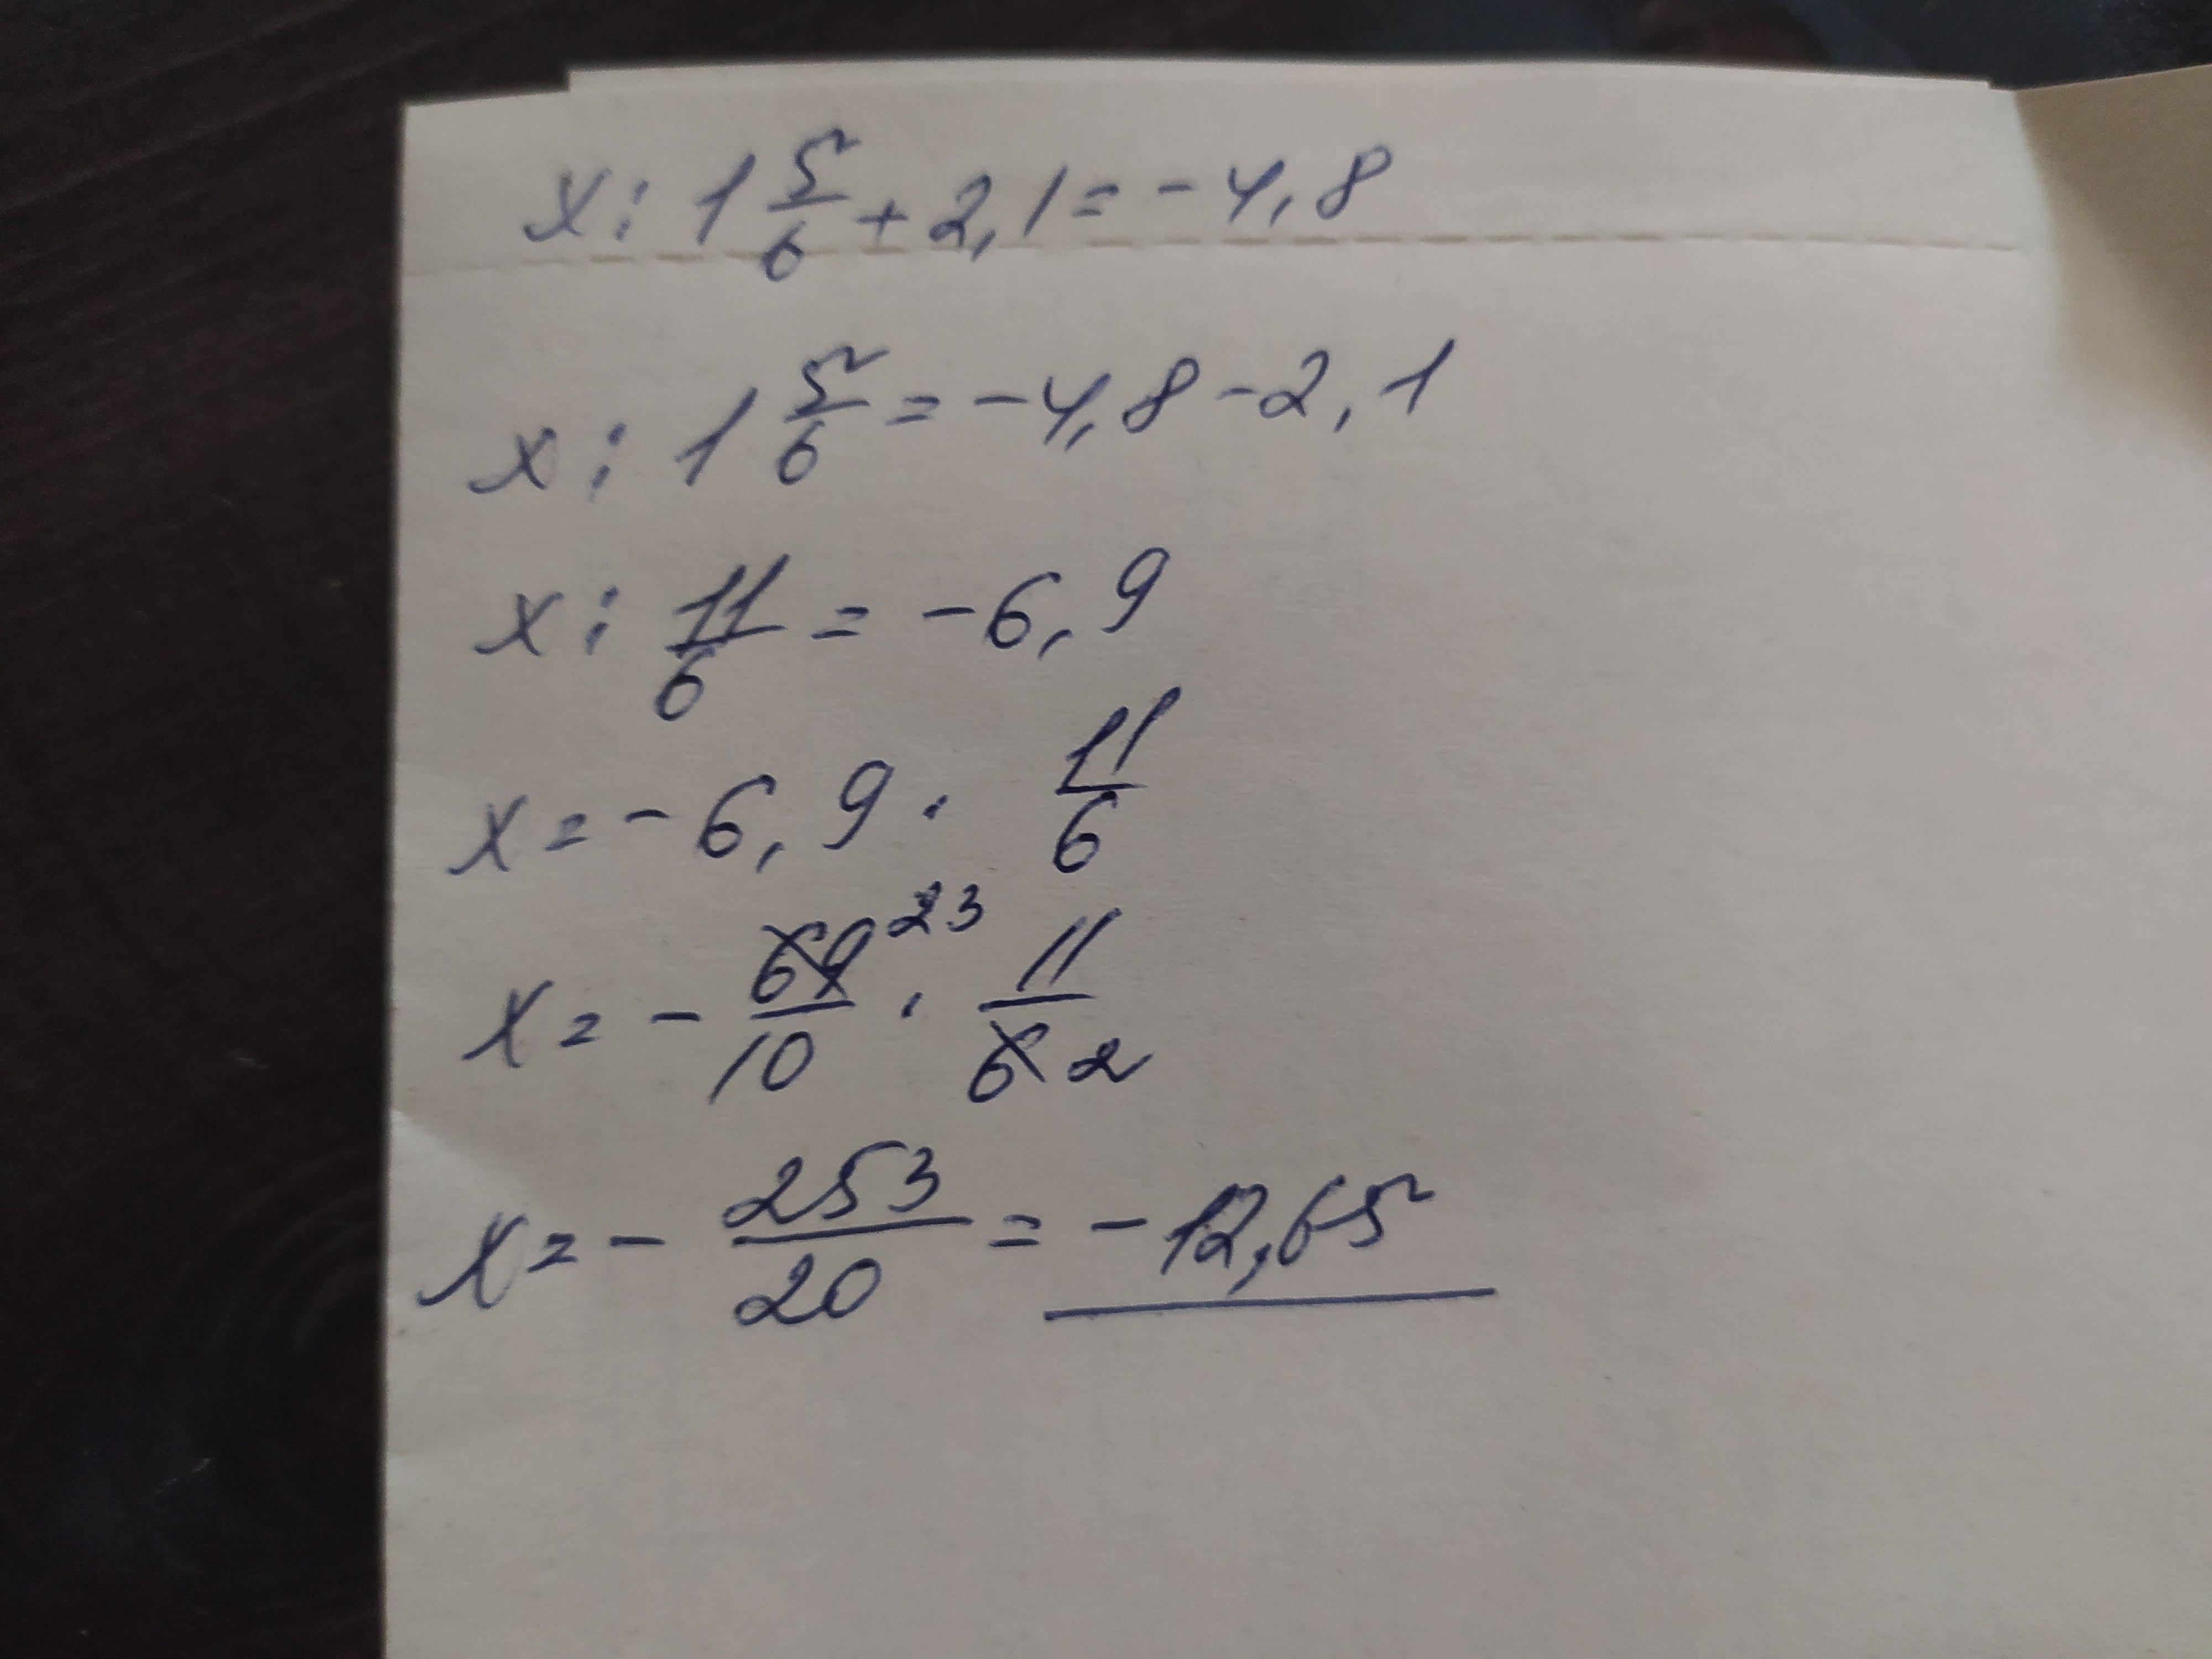 x : 1 5/6 + 2,1 = - 4,8
x : 1 5/6 = - 4,8 - 2,1
x : 11/6 = - 6,9
x = - 6,9 · 11/6
x = - 69/10 23 · 11/6 2
x = - 253/20 = - 12,65